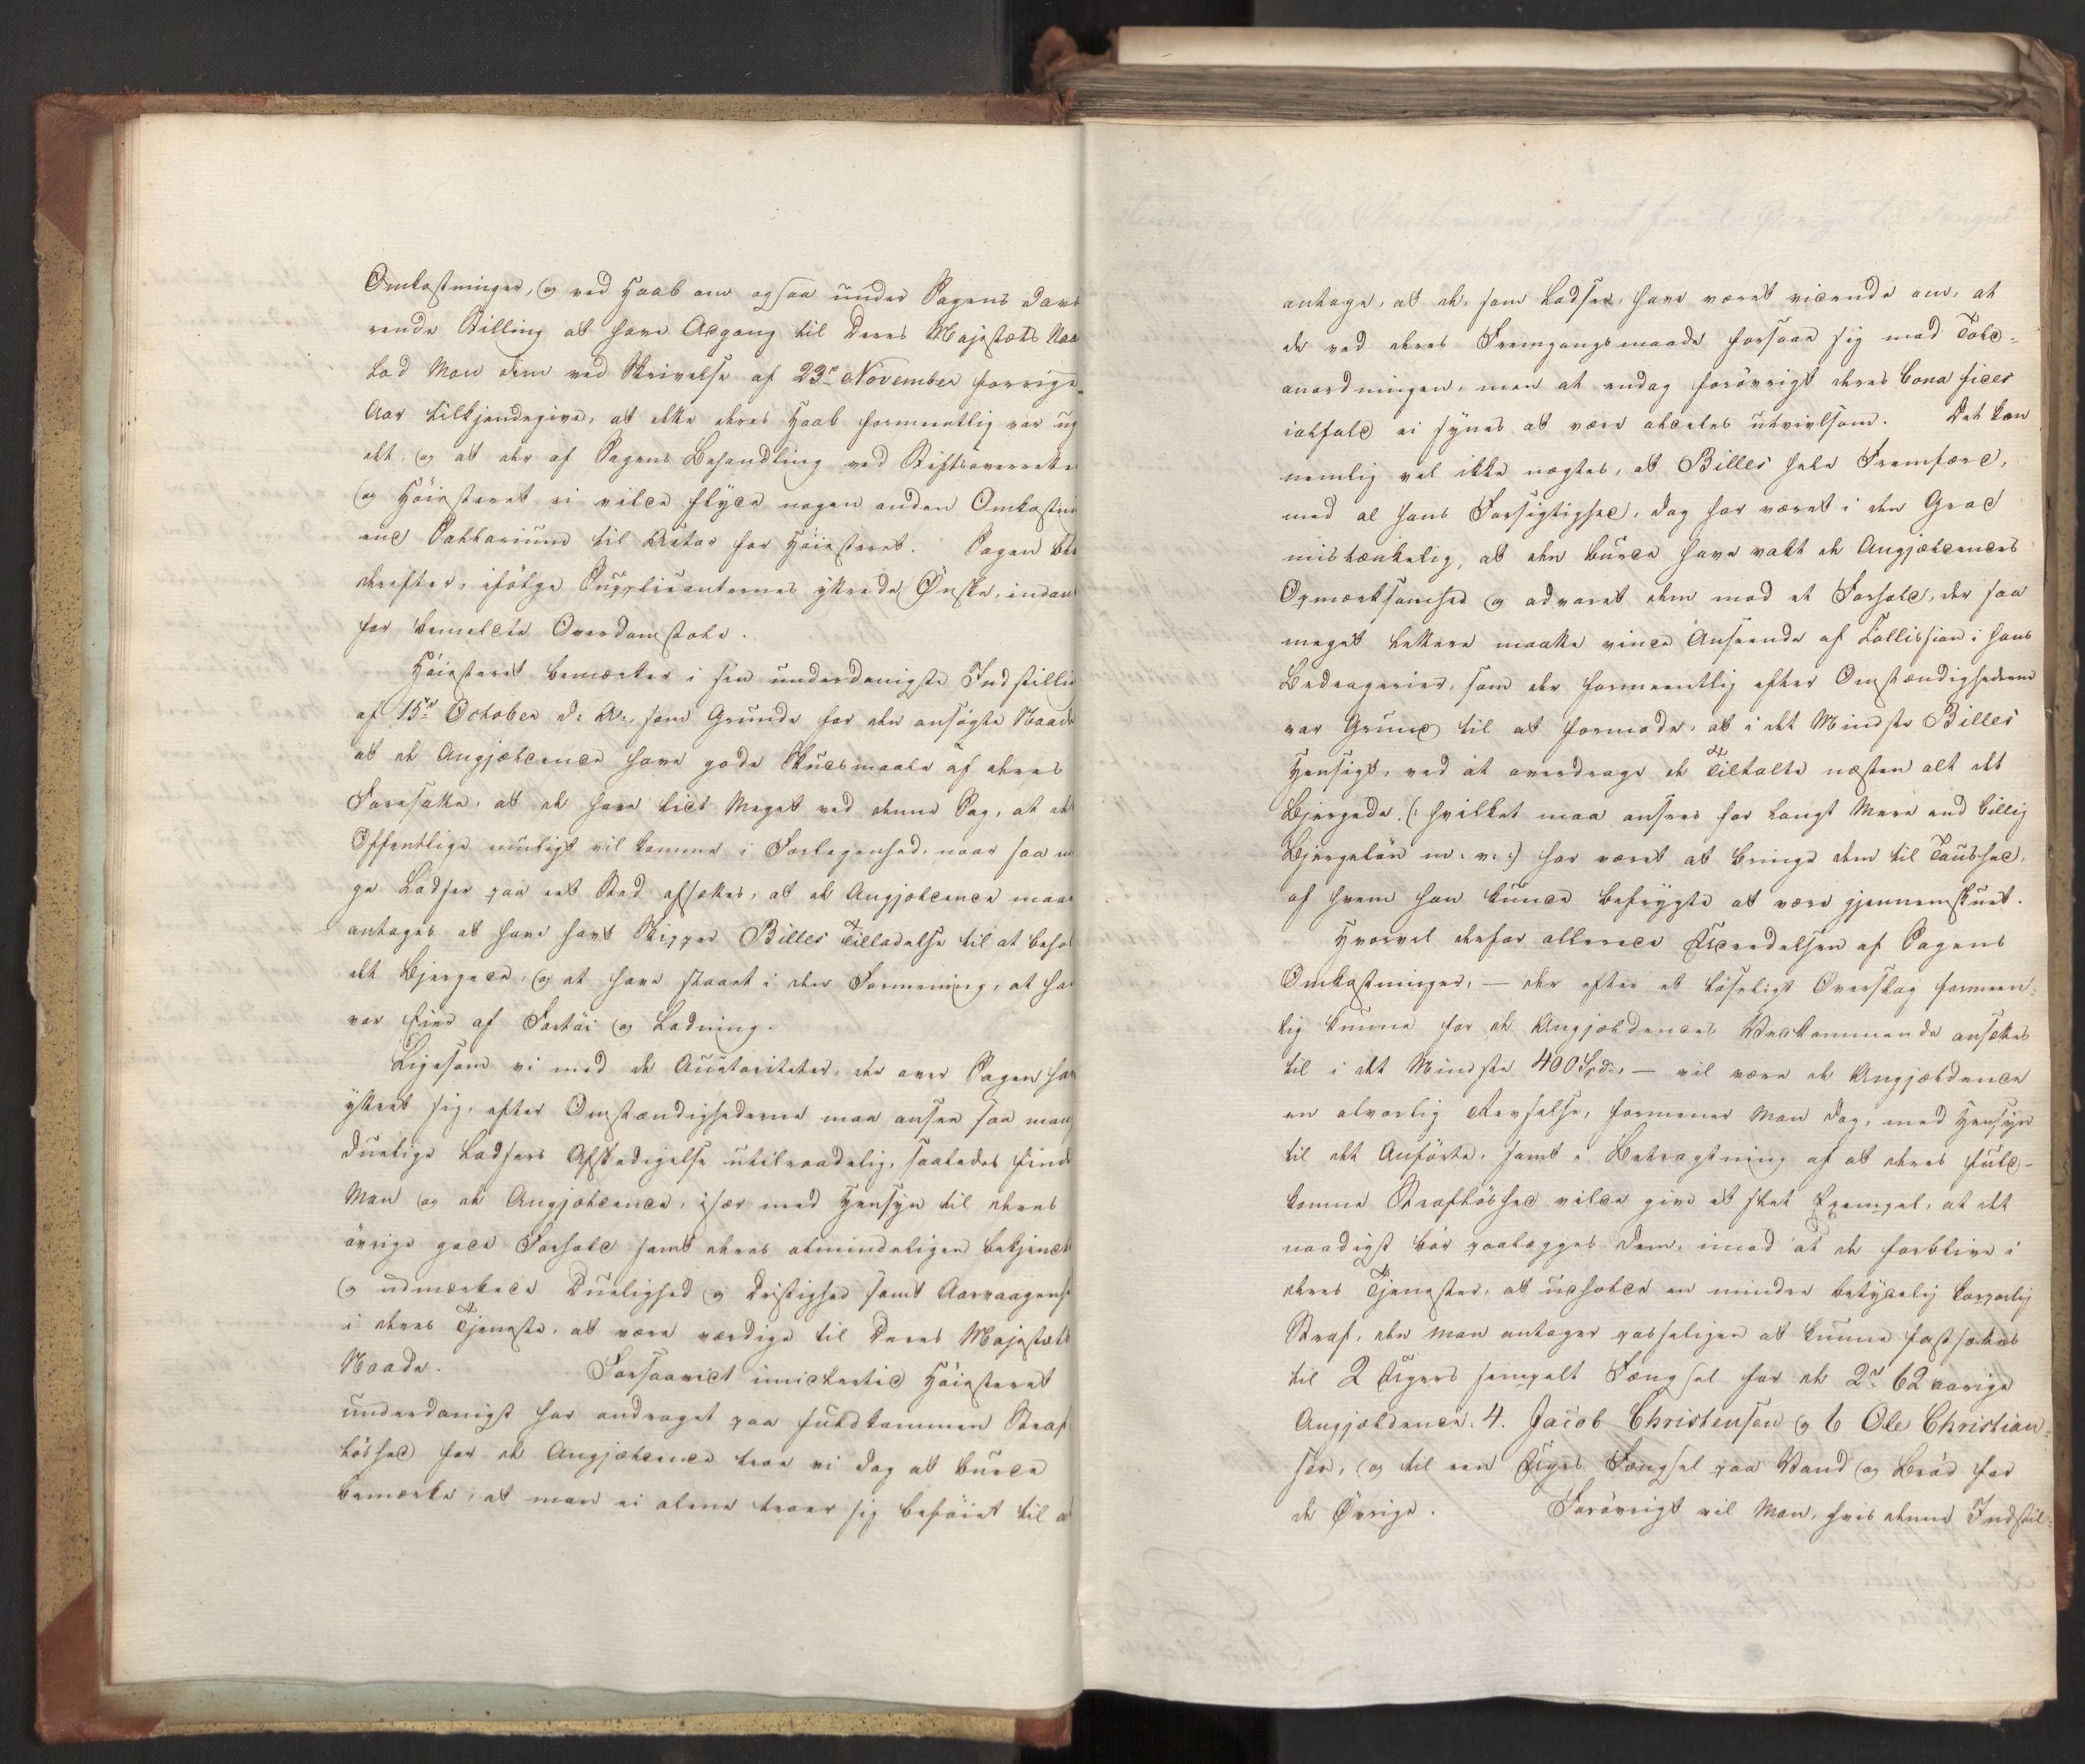 Omkostninger, og ved Haab om ogsaa under Sagens dava
rende Stilling at have Adgang til Deres Majestæts Naa
lod Man dem ved Skrivelse af 23de November forrige
Aar tilkjendegive, at dette deres Haab formeentlig var ug
det, og at der af Sagens Behandling ved Stiftsoverrette
og Høiesteret ei vilde flyde nogen anden Omkostni
end Salarium til Actor for Høiesteret. Sagen ble
derefter, ifølge Supplicanternes yttrede Ønske, indan
for bemeldte Overdomstole.
Høiesteret bemærker i sin underdanigste Indstillin
af 15de October d: A:, som Grunde for den ansøgte Naade
at de Angjældende have gode Skudsmaale af deres
Foresatte, at de have lidt Meget ved denne Sag, at det
Offentlige muligt vil komme i Forlegenhed, naar saa m
ge Lodser paa eet Sted afsættes, at de Angjældende maae
antages at have havt Skipper Billes Tilladelse til at behol
det Bjergede, og at have staaet i den Formening, at han
var Eier af Fartøi og Ladning.
Ligesom vi med de Auctoriteter, der over Sagen hav
yttret sig, efter Omstændighederne maa ansee saa mang
duelige Lodsers Afskedigelse utilraadelig, saaledes finde
Man og de Angjældende, især med Hensyn til deres
øvrige gode Forhold samt deres almindeligen bekjendte
og udmærkede Duelighed og Dristighed samt Aarvaagenhe
i deres Tjeneste, at være værdige til Deres Majestæts
Naade. Forsaavidt imidlertid Høiesteret
underdanigst har andraget paa fuldkommen Straf
løshed for de Angjældende troe vi dog at burde
bemærke, at man ei alene troer sig beføiet til a
antage, at de, som Lodser, have været vidende om, at
de ved deres Fremgangsmaade forsaae sig mod Told-
anordningen, men at endog forøvrigt deres bona fides
ialfald ei synes at være aldeles utvivlsom. Det kan
nemlig vel ikke nægtes, at Billes hele Fremfærd,
med al hans Forsigtighed, dog har været i den Grad
mistænkelig, at den burde have vakt de Angjældendes
Opmærksomhed og advaret dem mod et Forhold, der saa
meget lettere maatte vinde Anseende af Collission i hans
Bedragerier, som der formeentlig efter Omstændighederne
var Grund til at formode, at i det Mindste Billes
Hensigt, ved at overdrage de Tiltalte næsten alt det
Bjergede (: hvilket maa ansees for langt Mere end billig
Bjergeløn m: v: :) har været at bringe dem til Taushed,
af hvem han kunde befrygte at være gjennemskuet.
Hvorvel derfor allerede Udredelsen af Sagens
Omkostninger, — der efter et løseligt Overslag formeen-
lig kunne for de Angjældendes Vedkommende ansættes
til i det Mindste 400 Spd:, — vil være de Angjældende
en alvorlig Revselse, formener Man dog, med Hensyn
til det Anførte, samt i Betragtning af at deres fuld-
komne Strafløshed vilde give et slet Exempel, at det
naadigst bør paalægges dem, imod at de forblive i
deres Tjenester, at udholde en mindre betydelig korporlig
Straf, den man antager passeligen at kunne fastsættes
til 2 Ugers simpelt Fængsel for de 2de 62 aarige
Angjældende: 4. Jacob Christensen og 6 Ole Christian-
sen, og til een Uges Fængsel paa Vand og Brød for
de Øvrige. Forøvrigt vil Man, hvis denne Indstil-